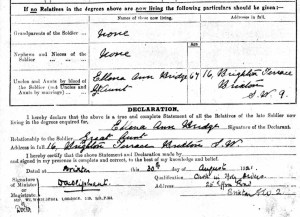 If no Relatives in the degrees above are now living the following particulars should be given:—
Names of those now living. Addresses in full.
Grandparents of the Soldier None
Nephews and Nieces of the Soldier None Age
Uncles and Aunts by blood of the Soldier (not Uncles and Aunts by marriage) Ellena Ann Bridge 67 16, Brighton Terrace
Brixton
S.W 9.
DECLARATION.
I hereby declare that the above is a true and complete Statement of all the Relatives of the late Soldier now
living in the degrees enquired for. Ellena Ann Bridge Signature of the Declarant.
Relationship to the Soldier Great Aunt
Address in full 16, Brighton Terrace Brixton S.W
I hereby certify that the above Statement and Declaration made by
and signed in my presence is complete and correct, to the best of my knowledge and belief.
Dated at Brixton this 20th day of August
Signature of Minister or Magistrate Qualification
Address Brixton S.W. 2